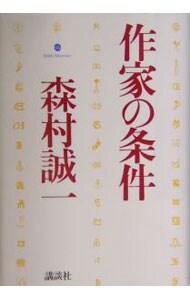 作家の条件
森村誠一
講談社